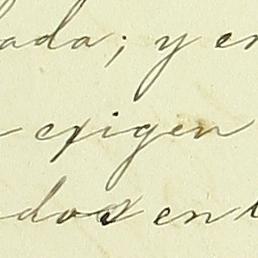 ada; y en
exigen
dos en